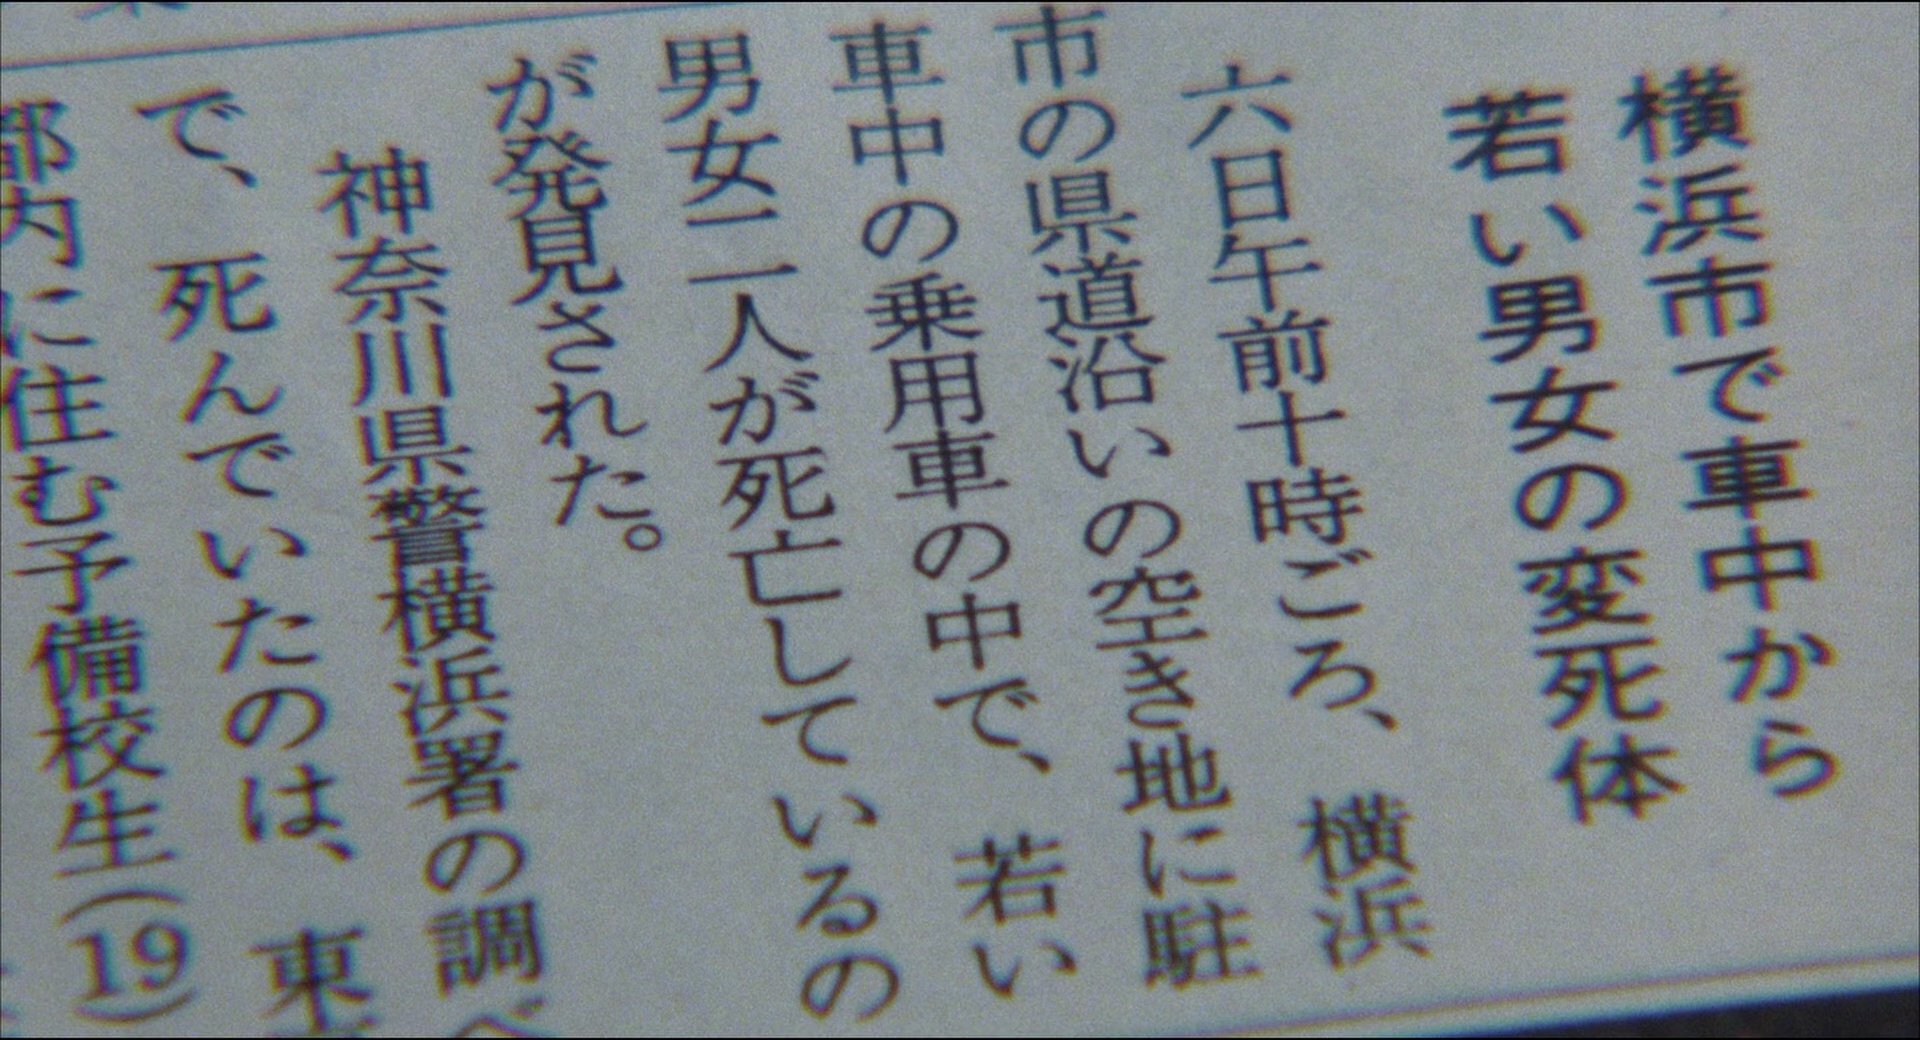 横浜市で車中から
若い男女の変死体
六日午前十時ごろ、横浜
市の県道沿いの空き地に駐
車中の乗用車の中で、若い
男女二人が死亡しているの
が発見された。
神奈川県警横浜署の調べ
で、死んでいたのは、東
都内に住む予備校生(19)